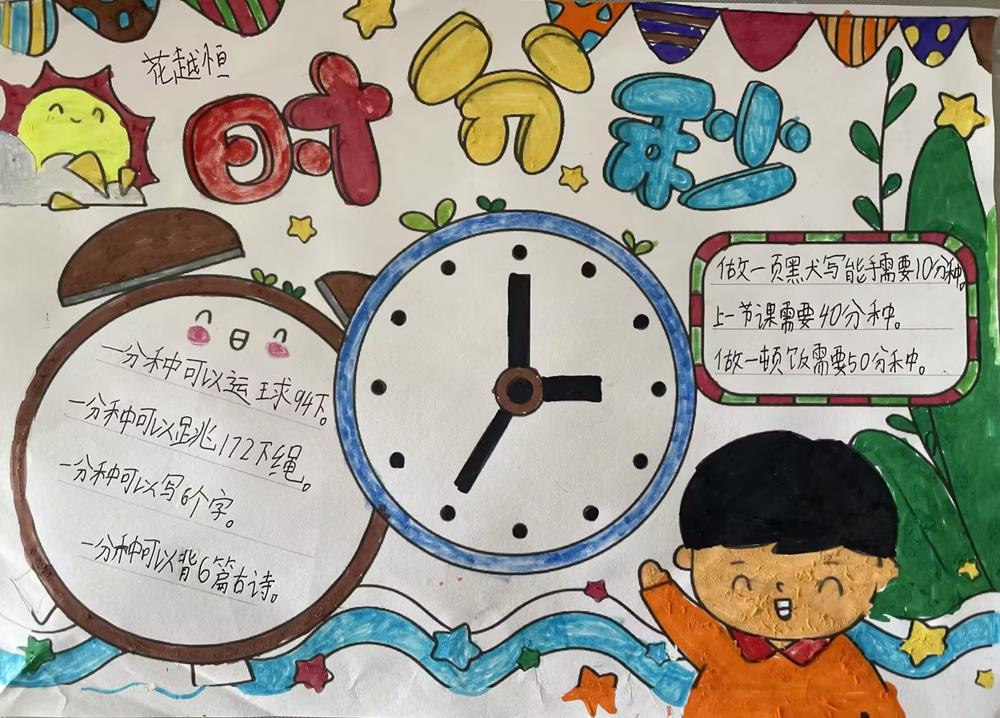 花越恒
时分秒
一分种可以运球94下。
一分种可以跳172下绳。
一分种可以写6个字。
一分种可以背6篇古诗。
做一页黑犬写能手需要10分种。
上一节课需要40分种。
做一顿饭需要50分种。